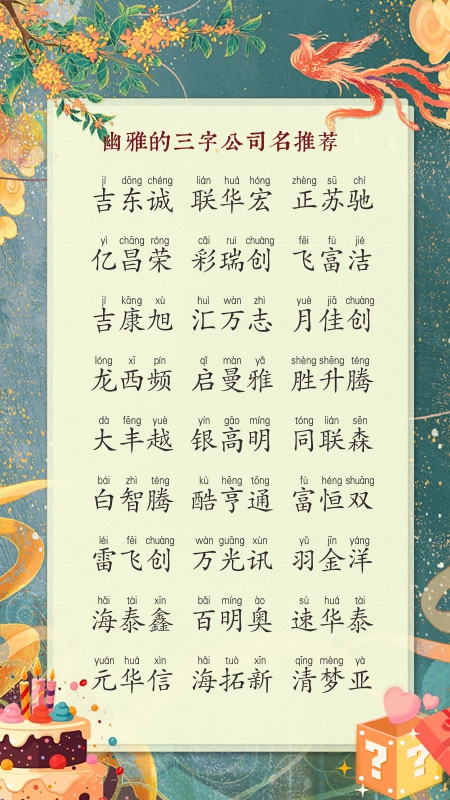 幽雅的三字公司名推荐
jí dōng chéng lián huá hóng zhèng sū chí
吉东诚 联华宏 正苏驰
yì chāng róng cǎi ruì chuàng fēi fù jié
亿昌荣 彩瑞创 飞富洁
jí kāng xù huì wàn zhì yuè jiā chuàng
吉康旭 汇万志 月佳创
lóng xī pín qǐ màn yǎ shèng shēng téng
龙西频 启曼雅 胜升腾
dà fēng yuè yín gāo míng tóng lián sēn
大丰越 银高明 同联森
bái zhì téng kù hēng tōng fù héng shuāng
白智腾 酷亨通 富恒双
léi fēi chuàng wàn guāng xùn yǔ jīn yáng
雷飞创 万光讯 羽金洋
hǎi tài xīn bǎi míng ào sù huá tài
海泰鑫 百明奥 速华泰
yuán huá xìn hǎi tuò xīn qīng mèng yà
元华信 海拓新 清梦亚
? ?